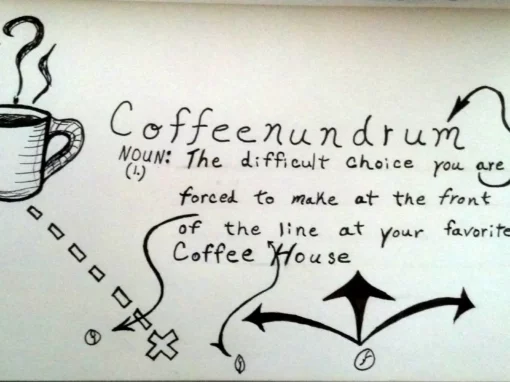 Coffeenundrum
NOUN: The difficult choice you are
(1.)
forced to make at the front
of the line at your favorite
Coffee House